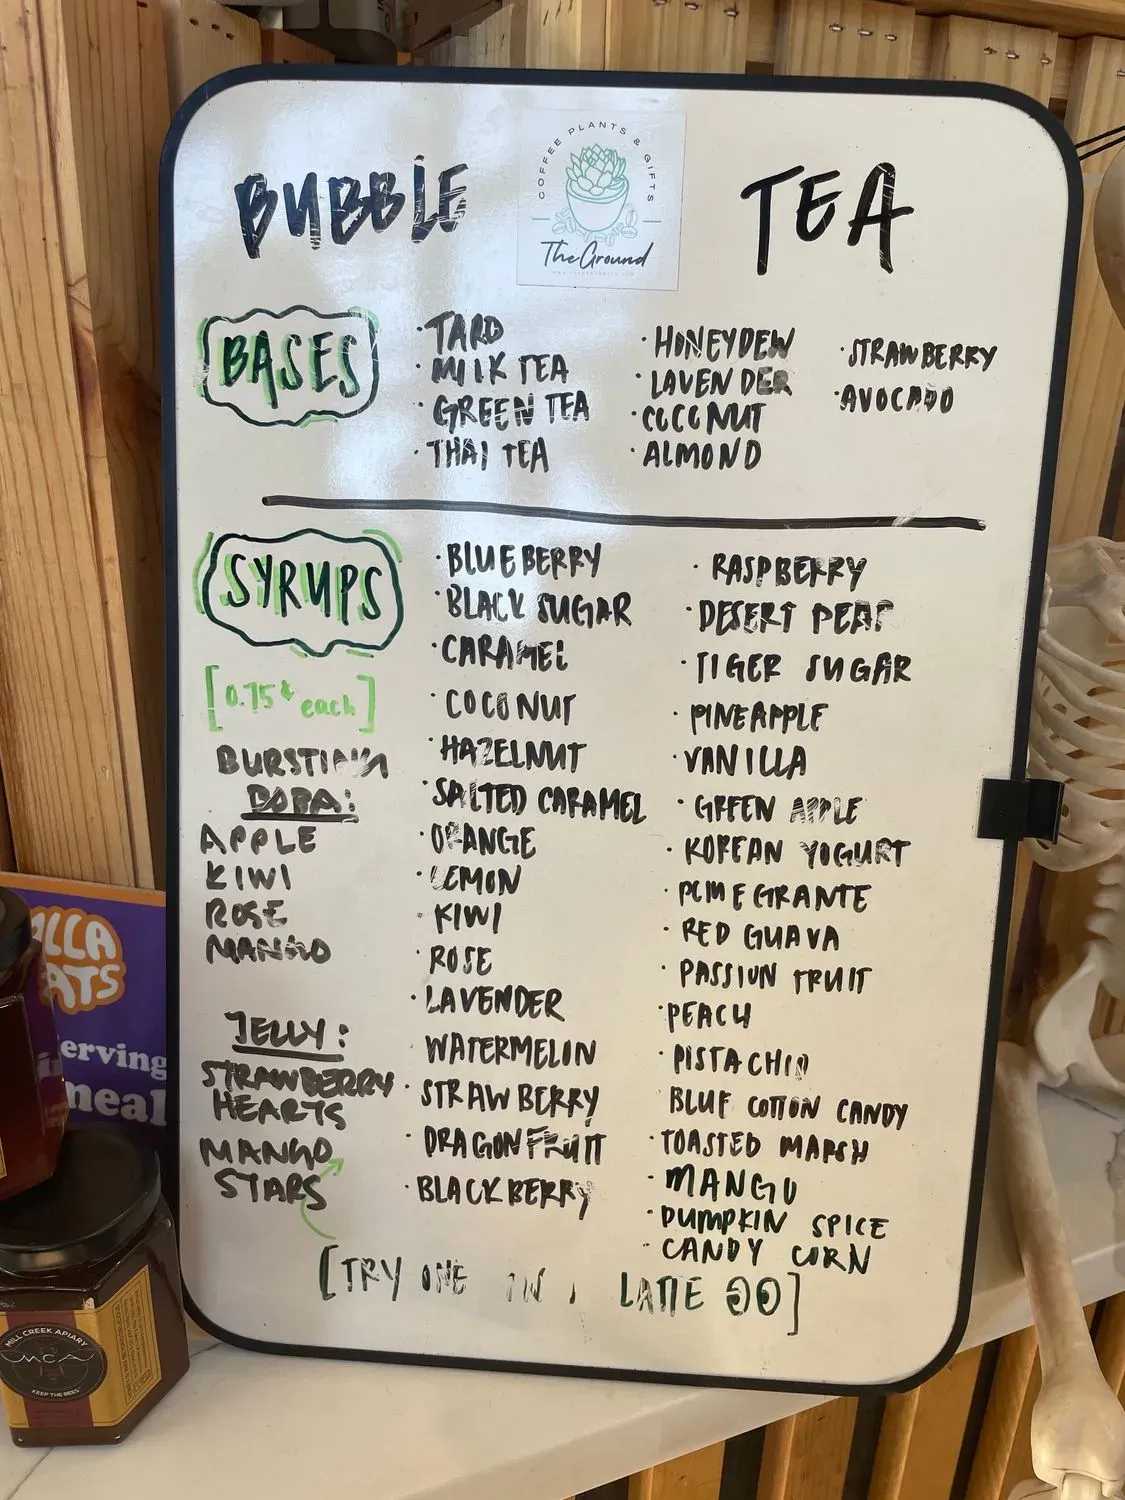 BUBBLE TEA
COFFEE PLANTS & GIFTS
The Ground
BASES
· TARO
· MILK TEA
· GREEN TEA
· THAI TEA
· HONEYDEW
· LAVENDER
· COCONUT
· ALMOND
· STRAWBERRY
· AVOCADO
SYRUPS
[0.75¢ each]
BURSTING
BOBA:
APPLE
KIWI
ROSE
MANGO
JELLY:
STRAWBERRY
HEARTS
MANGO
STARS
· BLUEBERRY
· BLACK SUGAR
· CARAMEL
· COCONUT
· HAZELNUT
· SALTED CARAMEL
· ORANGE
· LEMON
· KIWI
· ROSE
· LAVENDER
WATERMELON
· STRAWBERRY
· DRAGONFRUIT
· BLACKBERRY
· RASPBERRY
· DESERT PEAR
· TIGER SUGAR
· PINEAPPLE
· VANILLA
· GREEN APPLE
· KOREAN YOGURT
· POMEGRANTE
· RED GUAVA
· PASSION FRUIT
· PEACH
· PISTACHIO
BLUE COTTON CANDY
· TOASTED MARSH
· MANGO
· PUMPKIN SPICE
· CANDY CORN
[TRY ONE IN LATTE]
erving
neal
MILL CREEK APIARY
MCA
KEEP THE BEES